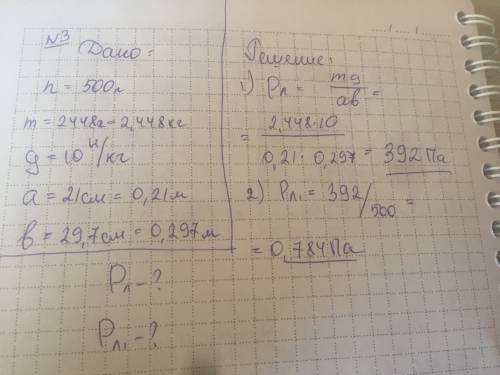 №3
Дано:
n = 500л
m = 2448г = 2,448кг
g = 10 Н/кг
a = 21см = 0,21м
в = 29,7см = 0,297м
Pл - ?
Pл₁ - ?
Решение:
1) Pл = mg/ab =
= 2,448·10/0,21·0,297 = 392Па
2) Pл₁ = 392/500 =
= 0,784Па